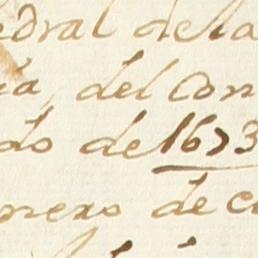 edral de la
ia, del Con
do de 1673
nero de c